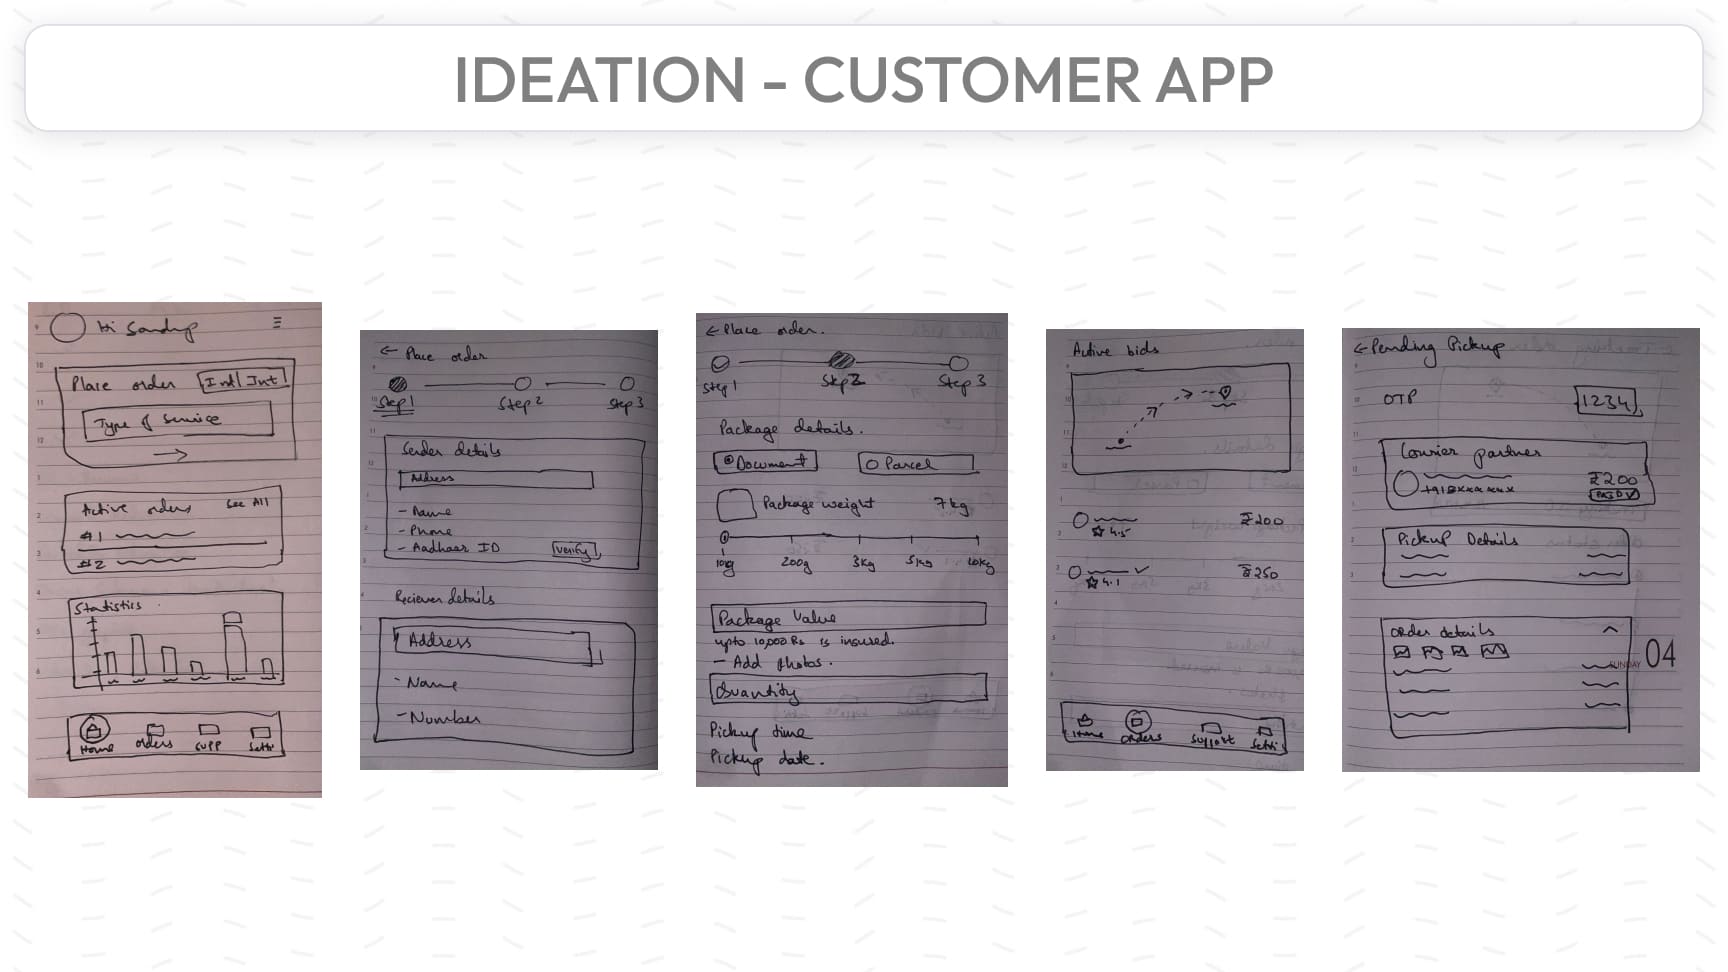 IDEATION - CUSTOMER APP
Hi Sandip
Place order
Intl Int
Type of Service
Active orders
See All
#1
#2
Statistics
Home
orders
Supp
Setti
← Place order
Step 1
Step 2
Step 3
Sender details
Address
- Name
- Phone
- Aadhaar ID
Verify
Reciever details
Address
- Name
- Number
← Place order.
Step 1
Step 2
Step 3
Package details.
Document
Parcel
Package weight
7kg
200g
3kg
5kg
10kg
Package Value
upto 10,000 Rs is insured.
- Add photos.
Quantity
Pickup time
Pickup date.
Active bids
₹200
4.5
₹250
4.1
Home
orders
Support
Setti
← Pending Pickup
OTP
1234
Courier partner
₹200
PAID
Pickup Details
Order details
SUNDAY 04